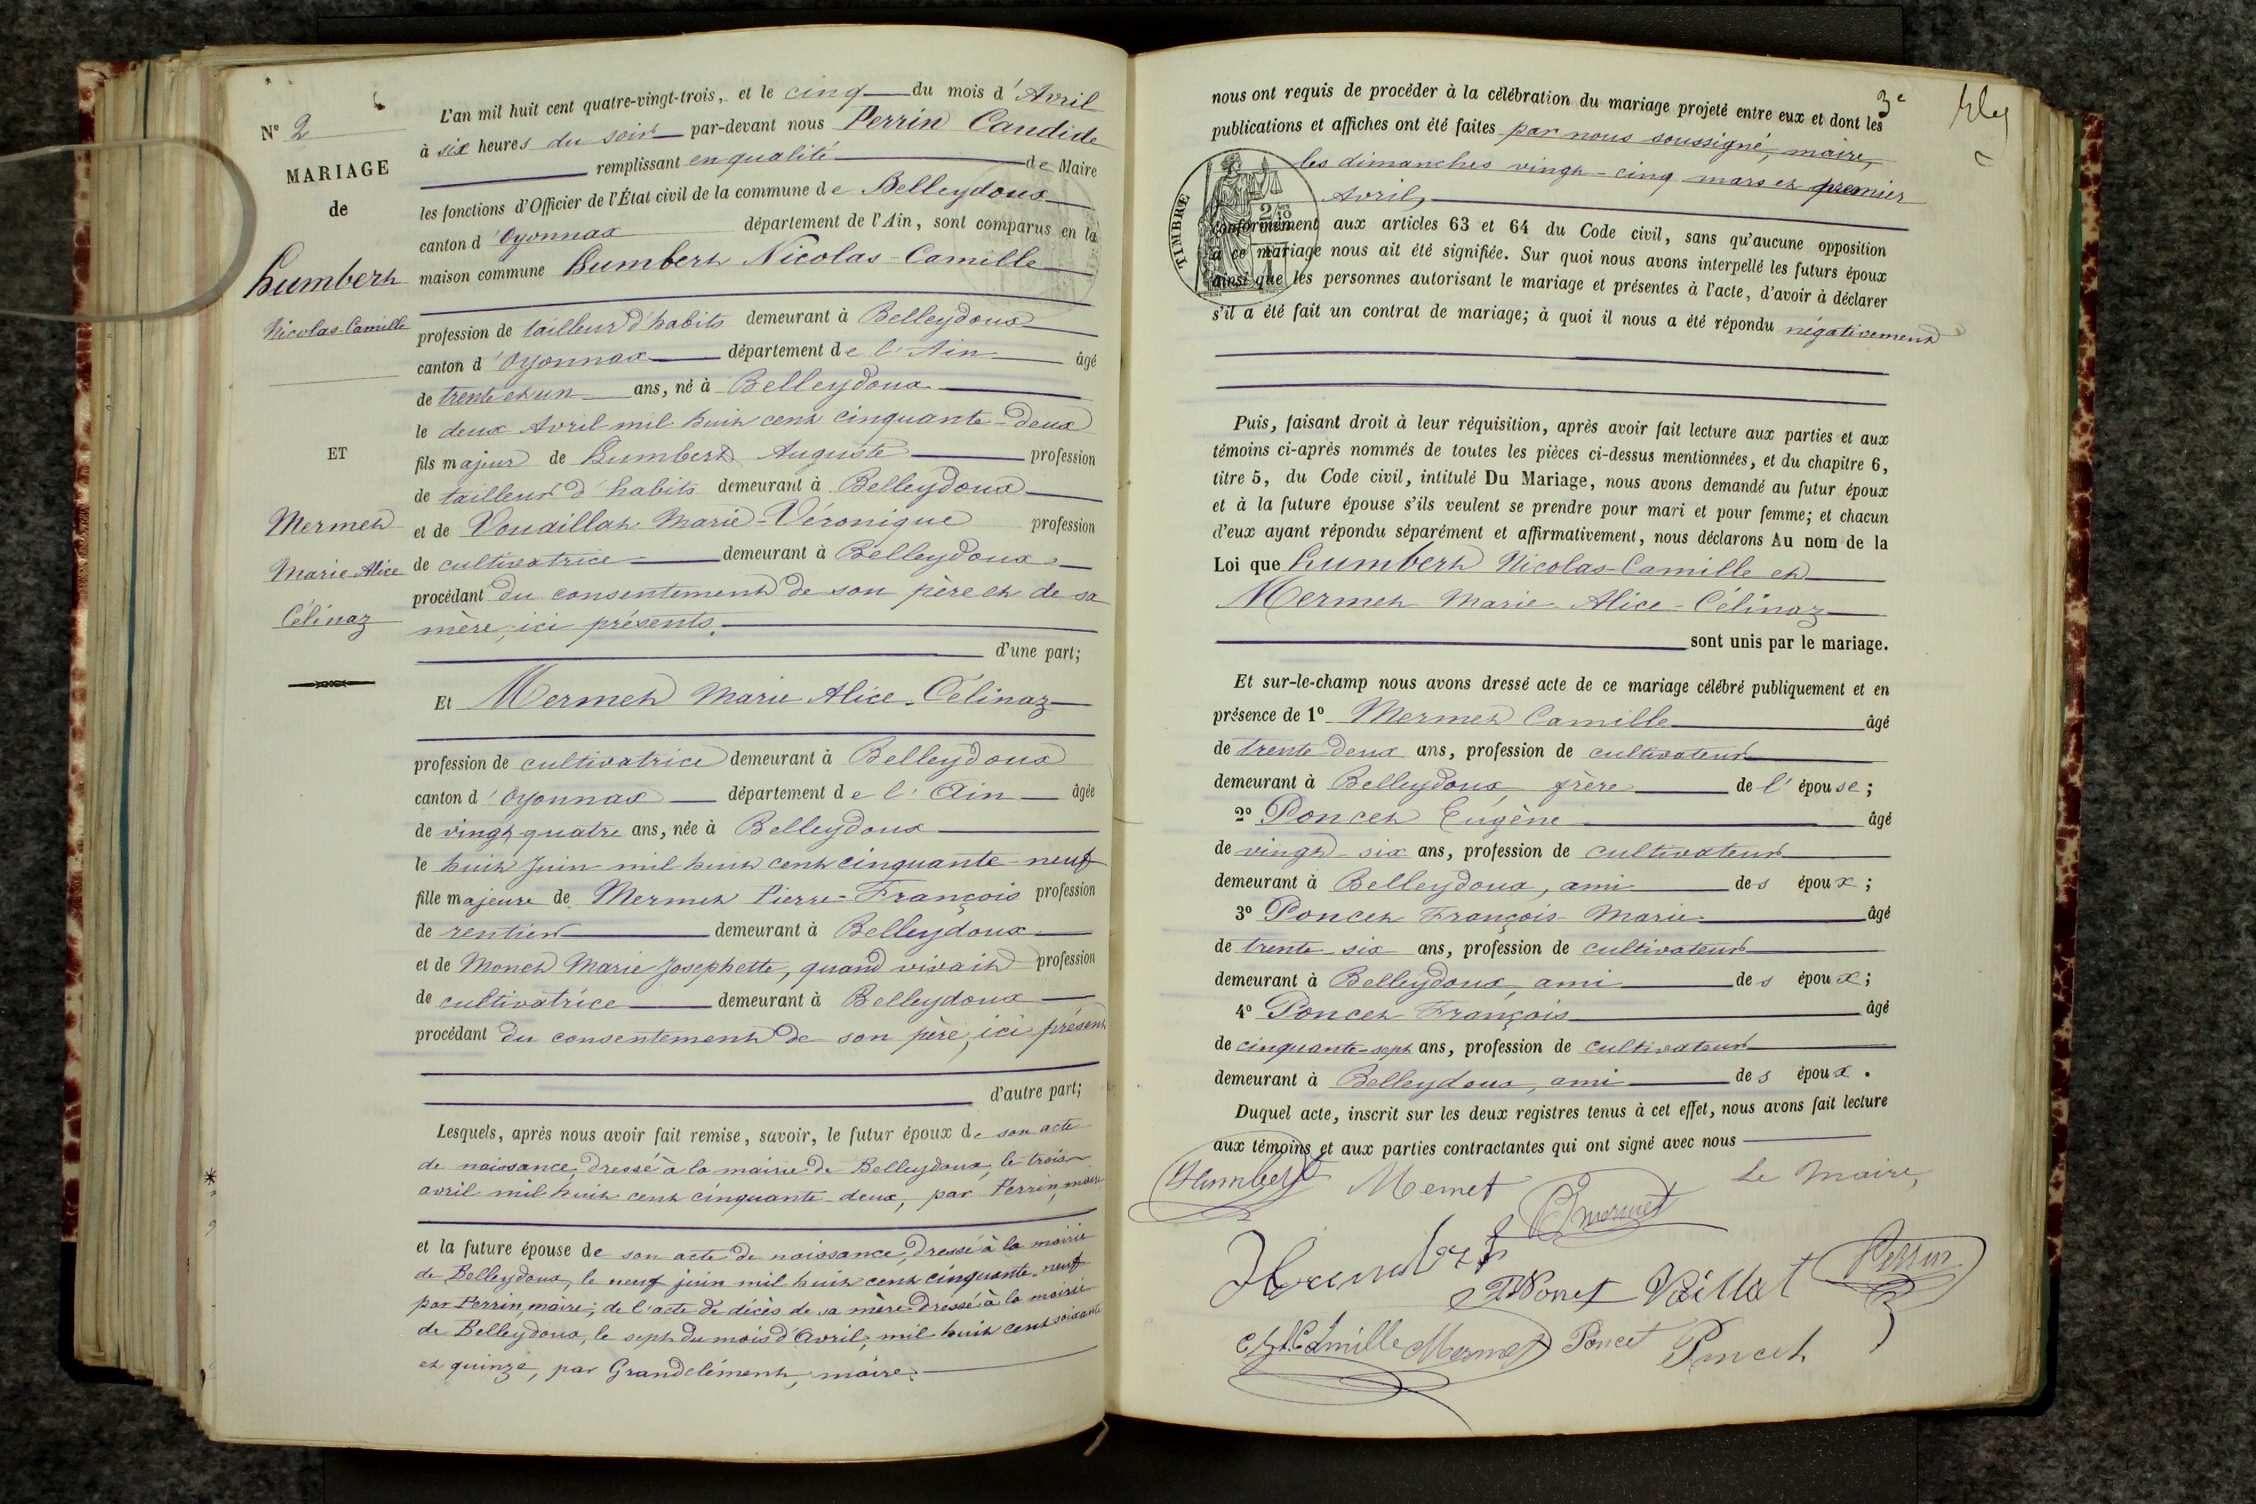 N° 2
MARIAGE
de
humbert
Nicolas Camille
ET
Mermet
Marie Alice
Célinaz
L'an mil huit cent quatre-vingt-trois, et le cinq du mois d'Avril
à six heures du soir par-devant nous Perrin Candide
remplissant en qualité de Maire
les fonctions d'Officier de l'État civil de la commune de Belleydoux
canton d'Oyonnax département de l'Ain, sont comparus en la
maison commune humbert Nicolas-Camille
profession de tailleur d'habits demeurant à Belleydoux
canton d'Oyonnax département de l'Ain âgé
de trente et un ans, né à Belleydoux
le deux Avril mil huit cent cinquante-deux
fils majeur de humbert Auguste profession
de tailleur d'habits demeurant à Belleydoux
et de Vouaillat Marie-Véronique profession
de cultivatrice demeurant à Belleydoux
procédant du consentement de son père et de sa
mère, ici présents.
d'une part;
Et Mermet Marie Alice-Célinaz
profession de cultivatrice demeurant à Belleydoux
canton d'Oyonnax département de l'Ain âgée
de vingt quatre ans, née à Belleydoux
le huit Juin mil huit cent cinquante-neuf
fille majeure de Mermet Pierre-François profession
de rentier demeurant à Belleydoux
et de Monet Marie Josephette, quand vivait profession
de cultivatrice demeurant à Belleydoux
procédant du consentement de son père, ici présent
d'autre part;
Lesquels, après nous avoir fait remise, savoir, le futur époux de son acte
de naissance, dressé à la mairie de Belleydoux, le trois
avril mil huit cent cinquante-deux, par Perrin, maire
et la future épouse de son acte de naissance, dressé à la mairie
de Belleydoux, le neuf juin mil huit cent cinquante-neuf
par Perrin, maire; de l'acte de décès de sa mère dressé à la mairie
de Belleydoux, le sept du mois d'Avril, mil huit cent soixante
et quinze, par Grandclément, maire.
3e
nous ont requis de procéder à la célébration du mariage projeté entre eux et dont les
publications et affiches ont été faites par nous soussigné, maire,
les dimanches vingt-cinq mars et premier
Avril,
TIMBRE
2/10
conformément aux articles 63 et 64 du Code civil, sans qu'aucune opposition
à ce mariage nous ait été signifiée. Sur quoi nous avons interpellé les futurs époux
ainsi que les personnes autorisant le mariage et présentes à l'acte, d'avoir à déclarer
s'il a été fait un contrat de mariage; à quoi il nous a été répondu négativement
Puis, faisant droit à leur réquisition, après avoir fait lecture aux parties et aux
témoins ci-après nommés de toutes les pièces ci-dessus mentionnées, et du chapitre 6,
titre 5, du Code civil, intitulé Du Mariage, nous avons demandé au futur époux
et à la future épouse s'ils veulent se prendre pour mari et pour femme; et chacun
d'eux ayant répondu séparément et affirmativement, nous déclarons Au nom de la
Loi que humbert Nicolas-Camille et
Mermet Marie-Alice-Célinaz
sont unis par le mariage.
Et sur-le-champ nous avons dressé acte de ce mariage célébré publiquement et en
présence de 1° Mermet Camille âgé
de trente-deux ans, profession de cultivateur
demeurant à Belleydoux, frère de l'épouse;
2° Poncet Eugène âgé
de vingt-six ans, profession de cultivateur
demeurant à Belleydoux, ami des époux;
3° Poncet François-Marie âgé
de trente six ans, profession de cultivateur
demeurant à Belleydoux, ami des époux;
4° Poncet François âgé
de cinquante-sept ans, profession de cultivateur
demeurant à Belleydoux, ami des époux.
Duquel acte, inscrit sur les deux registres tenus à cet effet, nous avons fait lecture
aux témoins et aux parties contractantes qui ont signé avec nous
Humbert Memet Le Maire,
Mermet
Perrin
Monet Vaillat
Camille Mermet Poncet Poncet